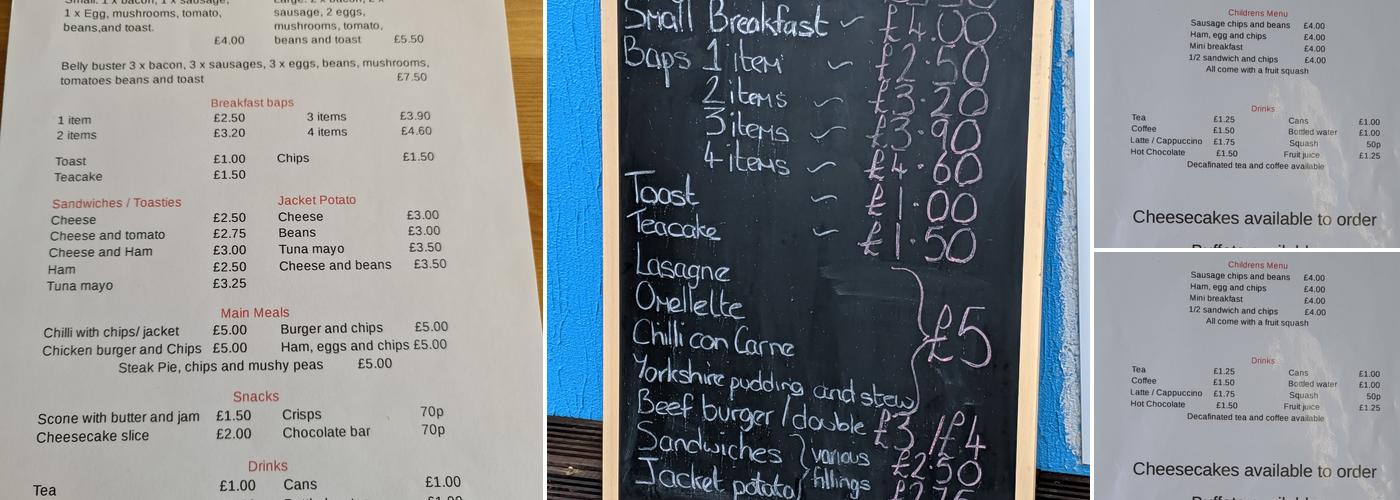 Small: 1 x bacon, 1 x sausage,
1 x Egg, mushrooms, tomato,
beans,and toast.
£4.00
Large: 2 x bacon, 2 x
sausage, 2 eggs,
mushrooms, tomato,
beans and toast £5.50
Belly buster 3 x bacon, 3 x sausages, 3 x eggs, beans, mushrooms,
tomatoes beans and toast £7.50
Breakfast baps
1 item £2.50 3 items £3.90
2 items £3.20 4 items £4.60
Toast £1.00 Chips £1.50
Teacake £1.50
Sandwiches / Toasties Jacket Potato
Cheese £2.50 Cheese £3.00
Cheese and tomato £2.75 Beans £3.00
Cheese and Ham £3.00 Tuna mayo £3.50
Ham £2.50 Cheese and beans £3.50
Tuna mayo £3.25
Main Meals
Chilli with chips/ jacket £5.00 Burger and chips £5.00
Chicken burger and Chips £5.00 Ham, eggs and chips £5.00
Steak Pie, chips and mushy peas £5.00
Snacks
Scone with butter and jam £1.50 Crisps 70p
Cheesecake slice £2.00 Chocolate bar 70p
Drinks
Tea £1.00 Cans £1.00
Small Breakfast ~ £4.00
Baps 1 item ~ £2.50
2 items ~ £3.20
3 items ~ £3.90
4 items ~ £4.60
Toast ~ £1.00
Teacake ~ £1.50
Lasagne
Omellette
Chilli con Carne £5
Yorkshire pudding and stew
Beef burger / double £3 / £4
Sandwiches } various £2.50
Jacket potato fillings
Childrens Menu
Sausage chips and beans £4.00
Ham, egg and chips £4.00
Mini breakfast £4.00
1/2 sandwich and chips £4.00
All come with a fruit squash
Drinks
Tea £1.25 Cans £1.00
Coffee £1.50 Bottled water £1.00
Latte / Cappuccino £1.75 Squash 50p
Hot Chocolate £1.50 Fruit juice £1.25
Decafinated tea and coffee available
Cheesecakes available to order
Childrens Menu
Sausage chips and beans £4.00
Ham, egg and chips £4.00
Mini breakfast £4.00
1/2 sandwich and chips £4.00
All come with a fruit squash
Drinks
Tea £1.25 Cans £1.00
Coffee £1.50 Bottled water £1.00
Latte / Cappuccino £1.75 Squash 50p
Hot Chocolate £1.50 Fruit juice £1.25
Decafinated tea and coffee available
Cheesecakes available to order